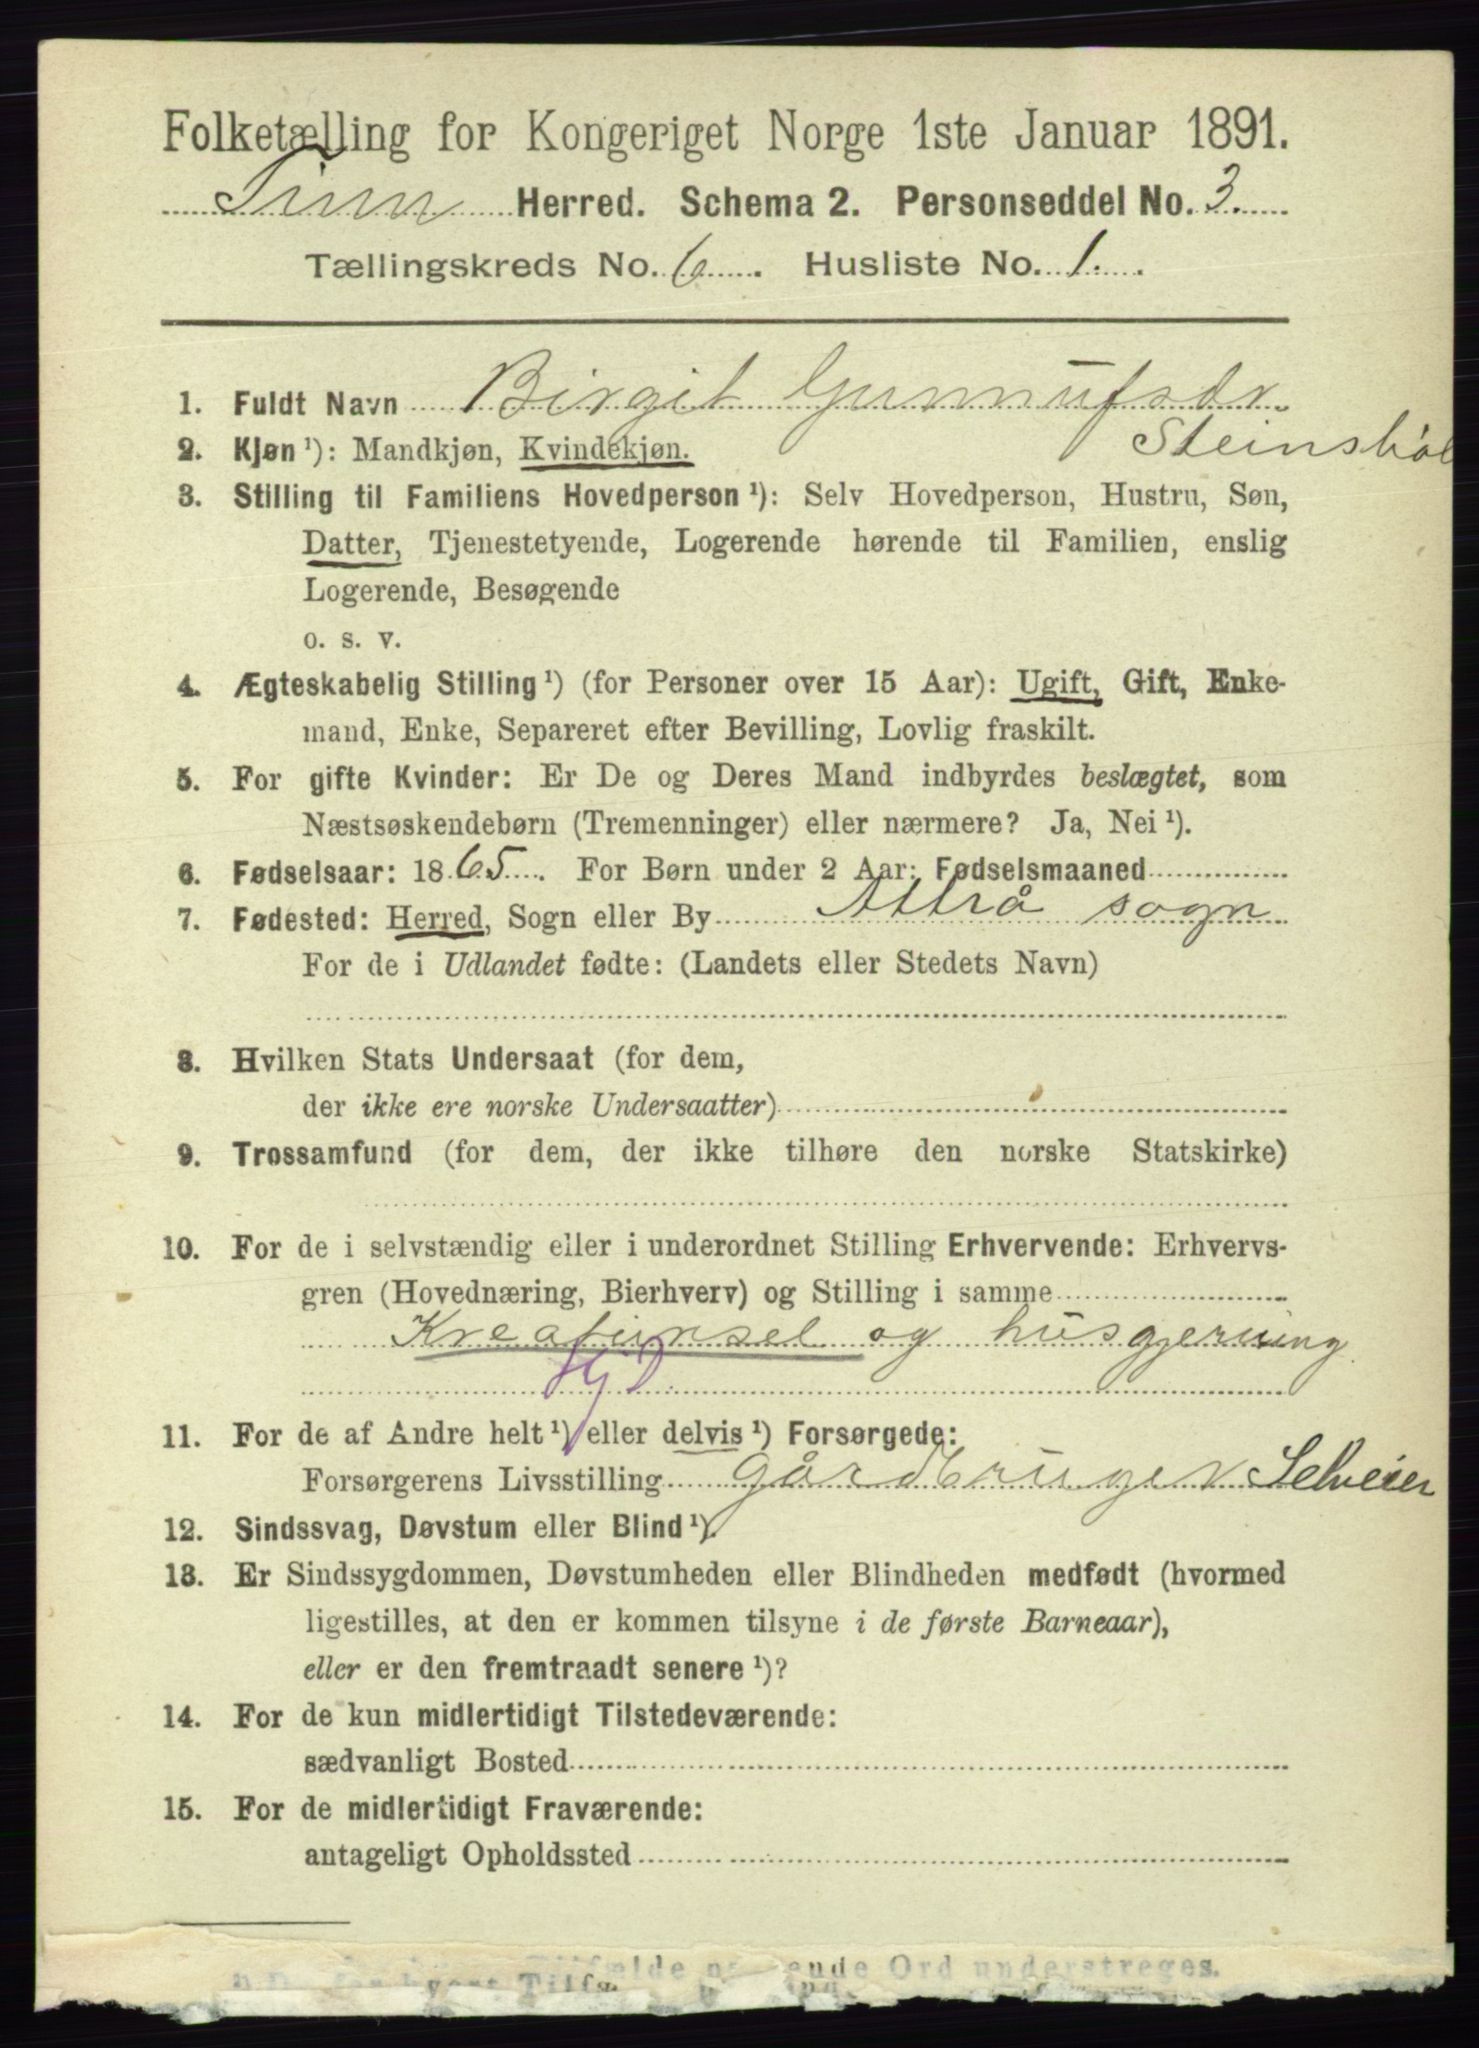 Folketælling for Kongeriget Norge 1ste Januar 1891.
Tinn Herred. Schema 2. Personseddel No. 3.
Tællingskreds No. 6. Husliste No. 1.
1. Fuldt Navn Birgit Gunnufsdr.
Steinsbøl
2. Kjøn¹): Mandkjøn, Kvindekjøn.
3. Stilling til Familiens Hovedperson¹): Selv Hovedperson, Hustru, Søn,
Datter, Tjenestetyende, Logerende hørende til Familien, enslig
Logerende, Besøgende
o. s. v.
4. Ægteskabelig Stilling¹) (for Personer over 15 Aar): Ugift, Gift, Enke-
mand, Enke, Separeret efter Bevilling, Lovlig fraskilt.
5. For gifte Kvinder: Er De og Deres Mand indbyrdes beslægtet, som
Næstsøskendebørn (Tremenninger) eller nærmere? Ja, Nei¹).
6. Fødselsaar: 1865. For Børn under 2 Aar: Fødselsmaaned
7. Fødested: Herred, Sogn eller By Attrå sogn
For de i Udlandet fødte: (Landets eller Stedets Navn)
8. Hvilken Stats Undersaat (for dem,
der ikke ere norske Undersaatter)
9. Trossamfund (for dem, der ikke tilhøre den norske Statskirke)
10. For de i selvstændig eller i underordnet Stilling Erhvervende: Erhvervs-
gren (Hovednæring, Bierhverv) og Stilling i samme
Kreaturstel og husgjerning
11. For de af Andre helt¹) eller delvis¹) Forsørgede:
Forsørgerens Livsstilling Gårdbruger Selveier
12. Sindssvag, Døvstum eller Blind¹).
13. Er Sindssygdommen, Døvstumheden eller Blindheden medfødt (hvormed
ligestilles, at den er kommen tilsyne i de første Barneaar),
eller er den fremtraadt senere¹)?
14. For de kun midlertidigt Tilstedeværende:
sædvanligt Bosted
15. For de midlertidigt Fraværende:
antageligt Opholdssted
ende Ord understreges.